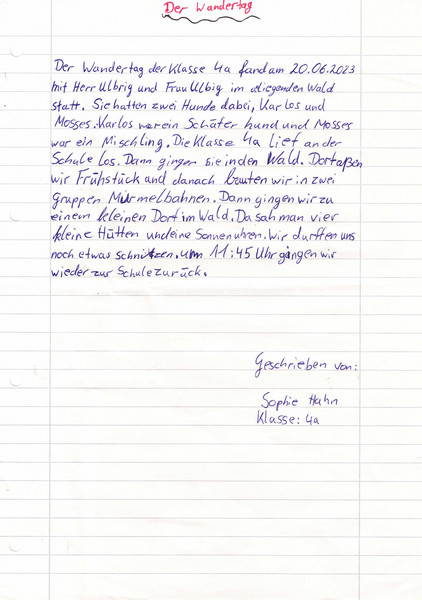 Der Wandertag
Der Wandertag der Klasse 4a fand am 20.06.2023
mit Herr Ulbrig und Frau Ulbig im aliegenden Wald
statt. Sie hatten zwei Hunde dabei, Karlos und
Mosses. Karlos war ein Schäfer hund und Mosses
war ein Mischling. Die Klasse 4a lief an der
Schule los. Dann gingen sie in den Wald. Dort aßen
wir Frühstück and danach bauten wir in zwei
gruppen Murmelbahnen. Dann gingen wir zu
einem kleinen Dorf im Wald. Da sah man vier
kleine Hütten und eine Sonnenuhren. Wir durften uns
noch etwas schnitzen. um 11:45 Uhr gingen wir
wieder zur Schule zurück.
Geschrieben von:
Sophie Hahn
Klasse: 4a